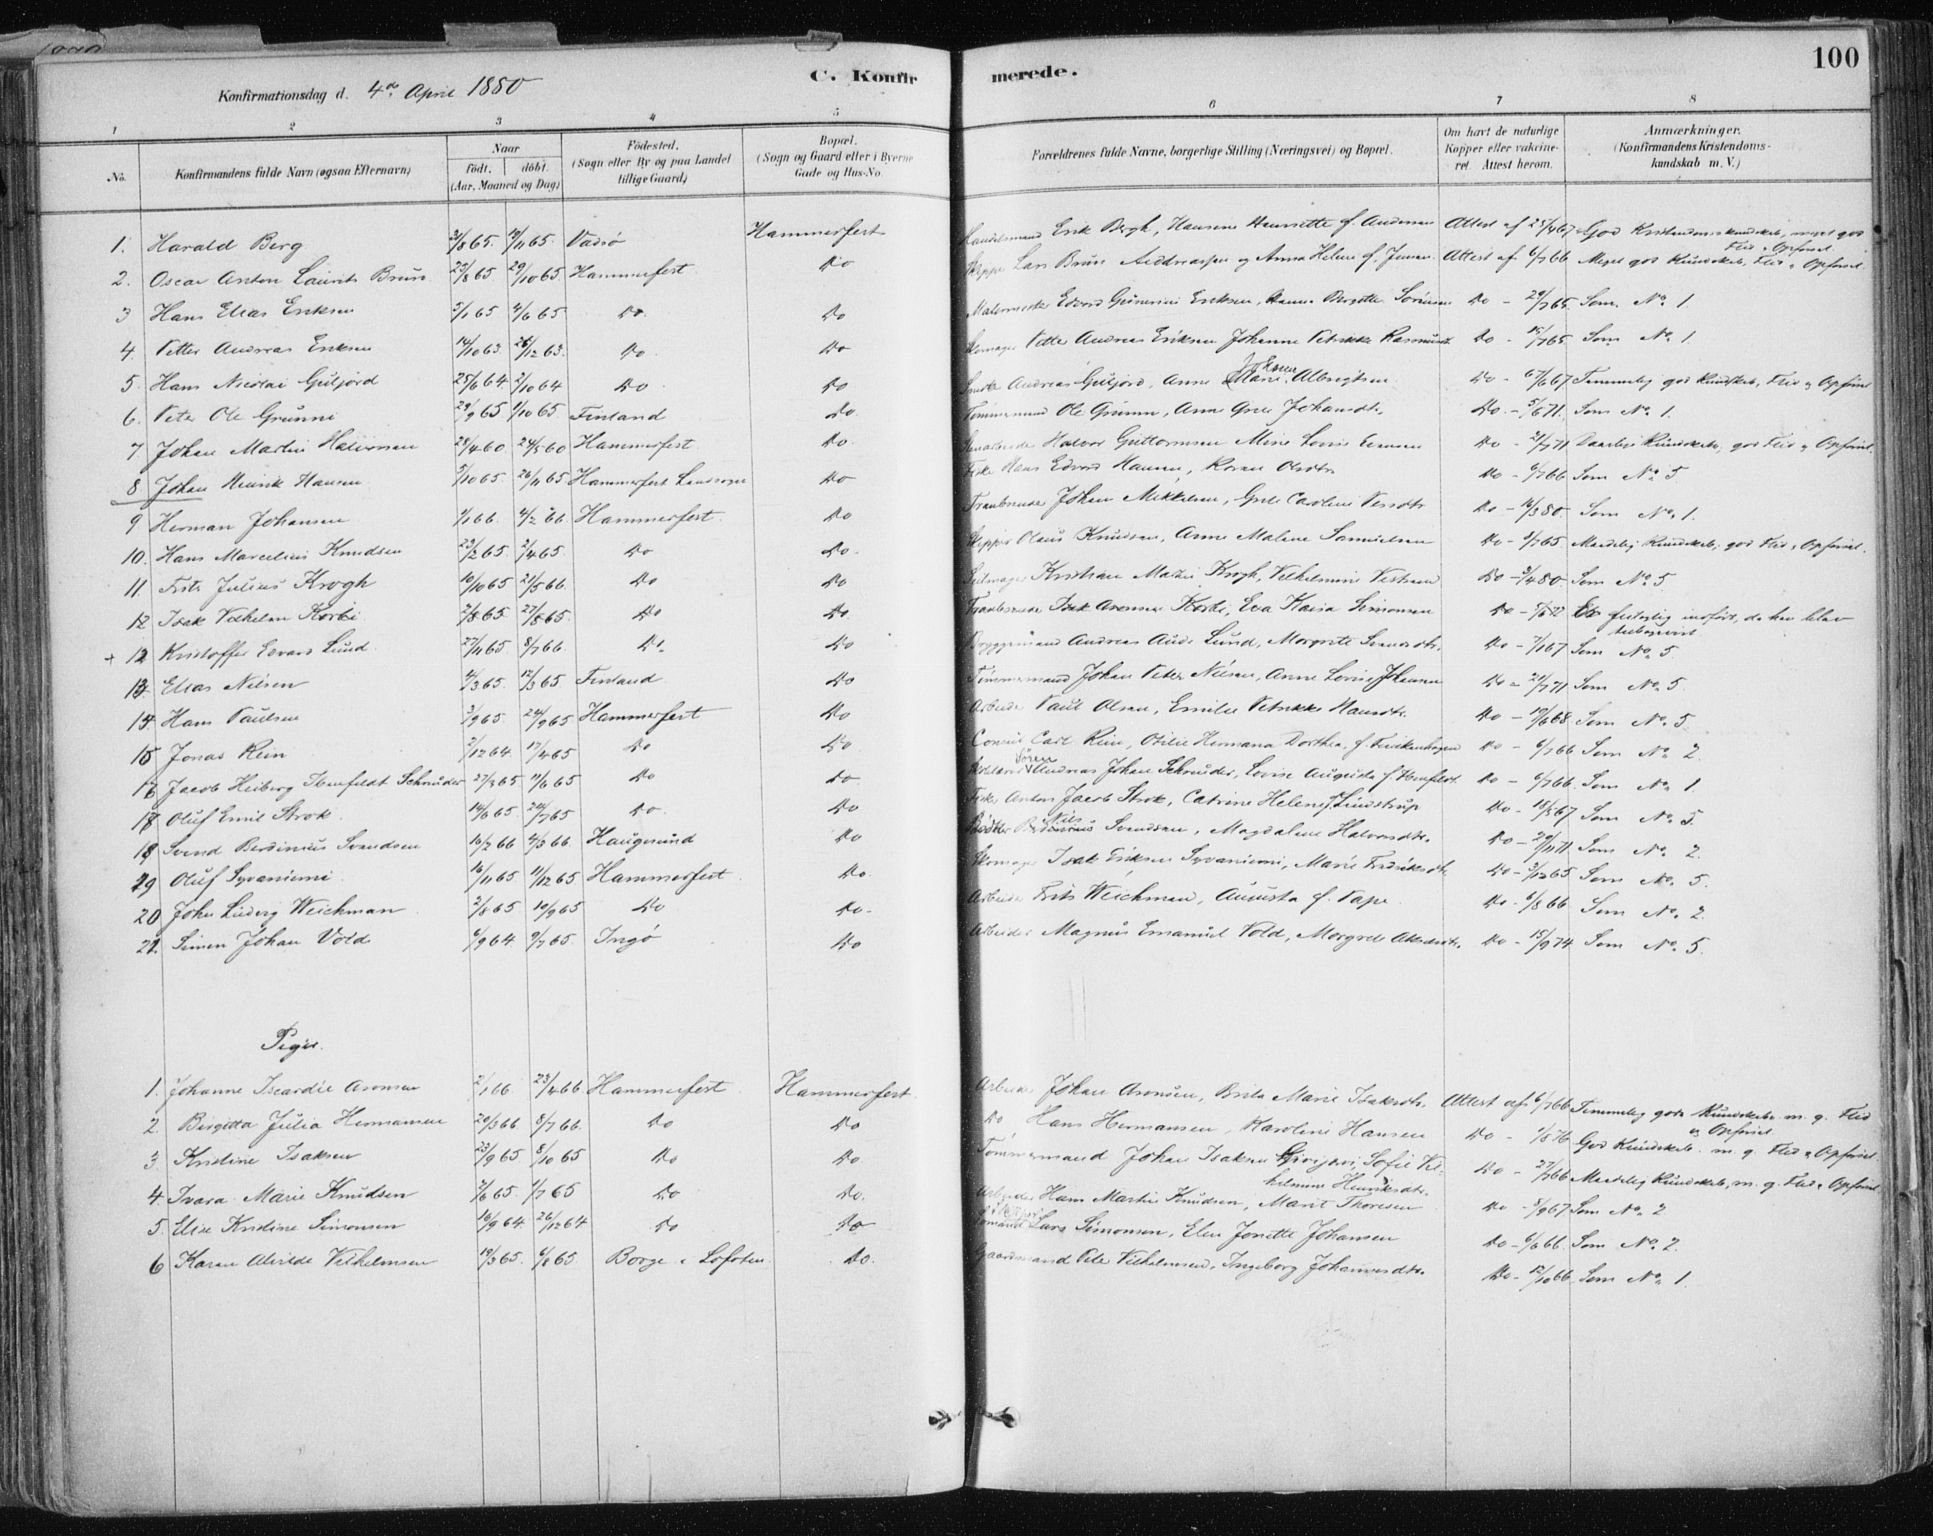 100
C. Konfirmerede.
Konfirmationsdag d. 4de April 1880
1 2 3 4 5 6 7 8
No. Konfirmandens fulde Navn (ogsaa Efternavn) Naar født. døbt. (Aar, Maaned og Dag) Fødested. (Sogn eller By og paa Landet tillige Gaard) Bopæl. (Sogn og Gaard eller i Byerne Gade og Hus-No. Forældrenes fulde Navne, borgerlige Stilling (Næringsvei) og Bopæl. Om havt de naturlige Kopper eller vakcineret. Attest herom. Anmærkninger. (Konfirmandens Kristendomskundskab m. V.)
1. Harald Berg 31/8 65. 19/11 65. Vadsø Hammerfest Handelsmand Erik Bergh, Hansene Henriette f. Andersen Attest af 25/9 67 God Kristendomskundskab, meget god Flid & Opførsel
2. Oscar Anton Laurits Bruun 25/8 65 29/10 65 Hammerfest Do Skipper Lars Bruun Anna Helene f. Jensen Attest af 6/7 66 Meget god Kundskab, Flid & Opførsel.
3 Hans Elias Eriksen 5/1 65 4/6 65 Do. Do Edvard Eriksen, Hanna Bergitte Sörensen Do - 29/7 65. Som No. 1
4. Petter Andreas Eriksen 14/10 63. 26/12 63. Do. Do Skomager Petter Andreas Eriksen Johanne Petrikke Rasmusdt. Do - 15/7 65 Som No. 1.
5. Hans Nicolai Guljord 25/6 64 2/10 64 Do. Do Andreas Guljord, Anne Marie Albregtsen Do - 6/6 67 Temmelig god Kundskab, Flid & Opførsel
6. Peter Ole Grunni 29/9 65 1/10 65 Finland Do. Tömmermand Ole Grunni, Anne Grete Johansdt. Do. - 5/6 71. Som No. 1.
7 Johan Martin Halvorsen 28/4 60. 24/5 60 Hammerfest. Do. Halvor Guttormsen Mine Lovise Do - 21/7 71 Daarlig Kundskab, god Flid & Opførsel.
8 Johan Henrik Hansen 5/10 65. 26/11 65 Hammerfest Landsogn Do Fisker Hans Edvard Hansen, Karen Olsdtr Do - 6/7 66 Som No. 5
9. Herman Johansen 1/1 66. 4/2 66 Hammerfest. Do Johan Mikkelsen, Grete Caroline Do - 16/3 80. Som No. 1.
10. Hans Marcelius Knudsen 23/2 65. 2/4 65. Do Do. Skipper Olaus Knudsen, Anne Malene Samuelsen Do - 1/7 65 Maadelig Kundskab, god Flid & Opførsel.
11. Frits Julius Krogh 10/10 65 21/5 66. Do Do Seilmager Kristian Krogh, Vilhelmine Do - 3/4 80 Som No. 5
12 Isak Vilhelm Korbi 2/8 65 27/8 65. Do Do. Isak Aronsen Korbi, Eva Kaisa Simonsen Do - 5/6 72 feilagtig indført, da han blev
+ 12 Kristoffer Edvard Lund. 27/11 65. 8/7 66. Do. Do Andreas Aude Lund, Margrete Svendsdtr. Do - 7/1 67 Som No. 5.
13 Elias Nilsen 4/3 65. 12/3 65. Finland Do Tömmermand Johan Peter Nilsen, Anne Lovise Johansen Do - 21/7 71 Som No. 5.
14. Hans Paulsen 3/9 65. 24/9 65 Hammerfest Do Arbeider Paul Olsen, Emilie Petrikke Hansdtr. Do - 19/6 68. Som No. 5.
15 Jonas Rein 2/12 64. 17/4 65 Do Do Consul Carl Rein, Otilie Hermana Dorthea f. Finkenhagen Do - 6/7 66 Som No. 2.
16 Jacob Heiberg Isenfeldt Schrøder 27/3 65 11/6 65 Do Do Søren Andreas Johan Schrøder, Lovise Augusta f. Isenfeldt. Do - 6/7 66. Som No. 1.
17 Oluf Emil Strøk 14/6 65. 24/7 65 Do. Do Fisker Anton Jacob Strøk, Catrine Helene f. Lindstrup Do - 18/5 67 Som No. 5.
18 Svend Berdinius Svendsen 16/2 66 4/3 66. Haugesund Do Nils Svendsen, Magdalene Halvorsdtr. Do - 20/11 71 Som No. 2.
19 Oluf Syvaniemi 16/11 65. 11/12 65 Hammerfest. Do. Skomager Isak Eriksen Syvaniemi, Marie Fredriksdtr Do - 3/12 65 Som No. 5.
20 John Ludvig Weichman 2/8 65 10/9 65 Do Do. Arbeider Frits Weichman, Augusta f. Pape. Do - 6/8 66 Som No. 2.
21. Simen Johan Vold 6/9 64 9/7 65. Ingø Do Arbeider Magnus Emanuel Vold, Margrete Do - 15/9 74 Som No. 5.
Piger.
1. Johanne Iscardie Aronsen 2/1 66 23/4 66 Hammerfest Hammerfest. Arbeider Johan Aronsen, Brita Marie Isaksdtr. Attest af 6/7 66 Temmelig god Kundskab. m. g. Flid og Opførsel
2. Birgitta Julia Hermansen 20/3 66 8/7 66. Do Do Do Hans Hermansen, Karoline Hansen Do - 1/8 76 God Kundskab. m. g. Flid & Opførsel.
3. Kristine Isaksen 23/9 65 8/10 65 Do Do. Tömmermand Johan Isaksen Sofie Vilhelmine Henriksdtr. Do - 27/7 66 Maadelig Kundskab, m. g. Flid & Opførsel
4. Ivara Marie Knudsen 3/6 65. 1/7 65 Do Do. Arbeider Hans Martin Knudsen, Marit Thoresen Do - 5/9 67 Som No. 2
5. Elise Kristine Simonsen 16/9 64 26/12 64 Do Do Lars Simonsen, Elen Jonette Johansen Do - 6/6 66. Som No. 2.
6 Karen Alvilde Vilhelmsen 19/3 65. 6/8 65 Borge i Lofoten. Do. Gaardmand Peder Vilhelmsen, Ingeborg Johannesdtr. Do - 12/10 66. Som No. 1